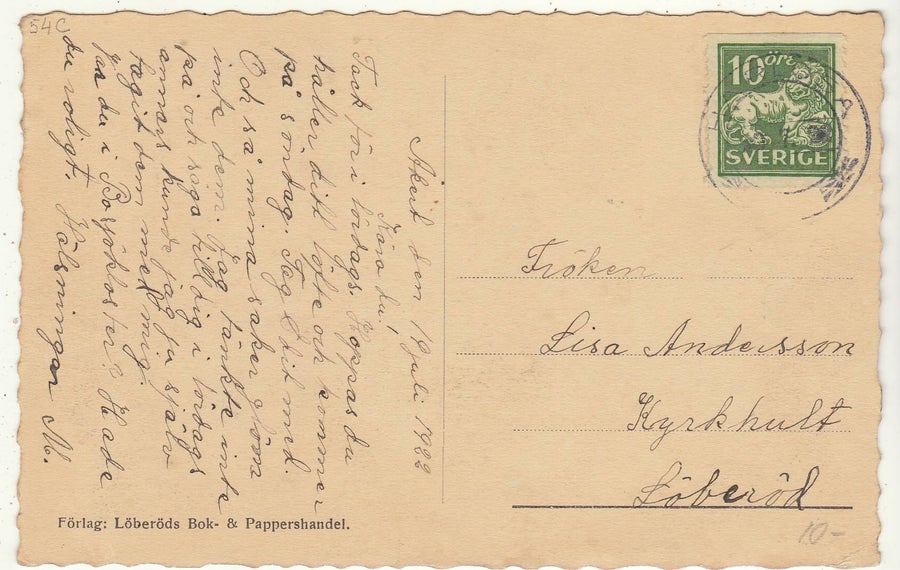 54C
Åkert den 19 juli 1922
Kära du!
Tack för i lördags. Hoppas du
håller ditt löfte och kommer
på söndag. Tag Edit med.
Och så mina saker glöm
inte dem. Jag tänkte inte
på och säga till dig i lördags
annars kunde jag ju själv
tagit dem med mig.
du i Bosjökloster? Hade
du roligt. Hälsningar M.
Förlag: Löberöds Bok- & Pappershandel.
10 öre
SVERIGE
Fröken
Lisa Andersson
Kyrkhult
Löberöd
10-